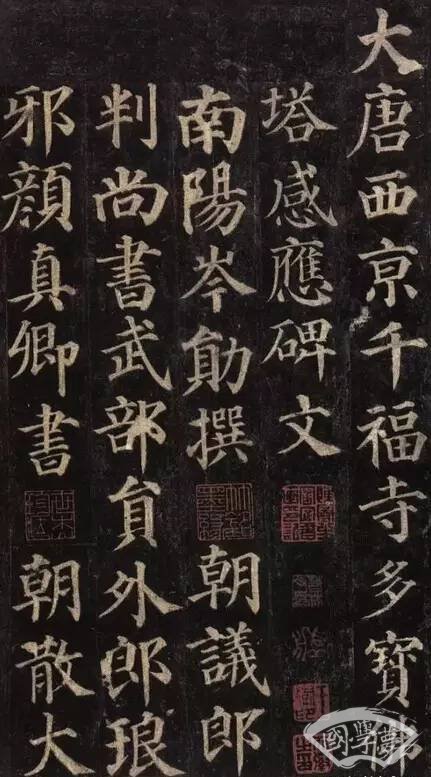 大唐西亰千福寺多寶佛
塔感應碑文
南陽岑勛撰 朝議郎
判尚書武部貟外郎琅
邪顏真卿書 朝散大
國學夢